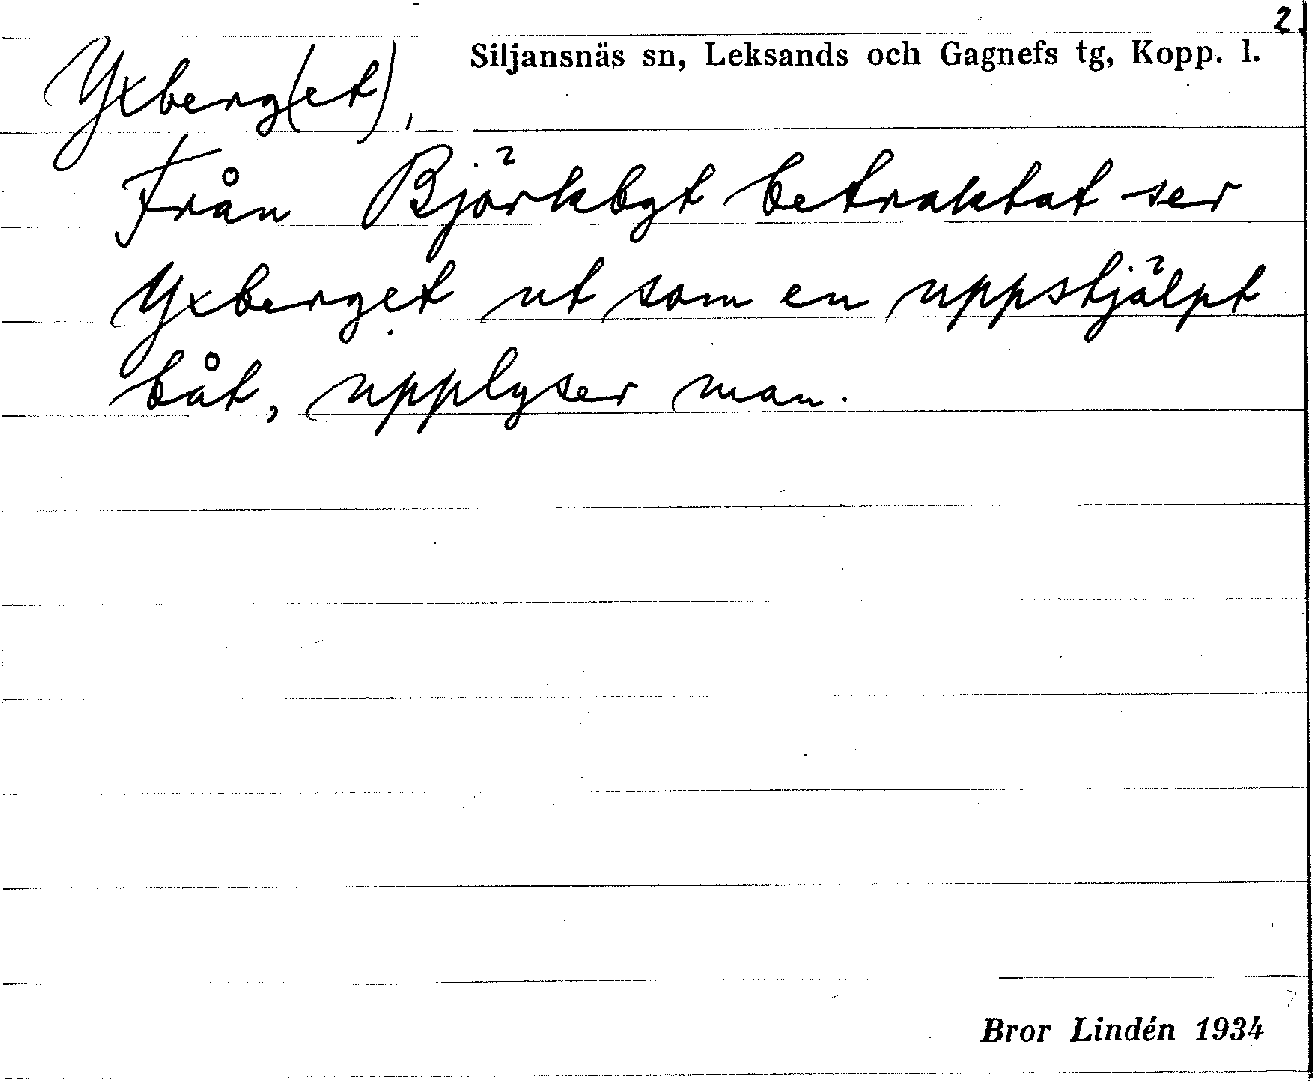 2.
Siljansnäs sn, Leksands och Gagnefs tg, Kopp. l.
Yxberg(et),
Från Björkbgt betraktat ser
Yxberget ut som en uppstjälpt
båt, upplyser man.
Bror Lindén 1934